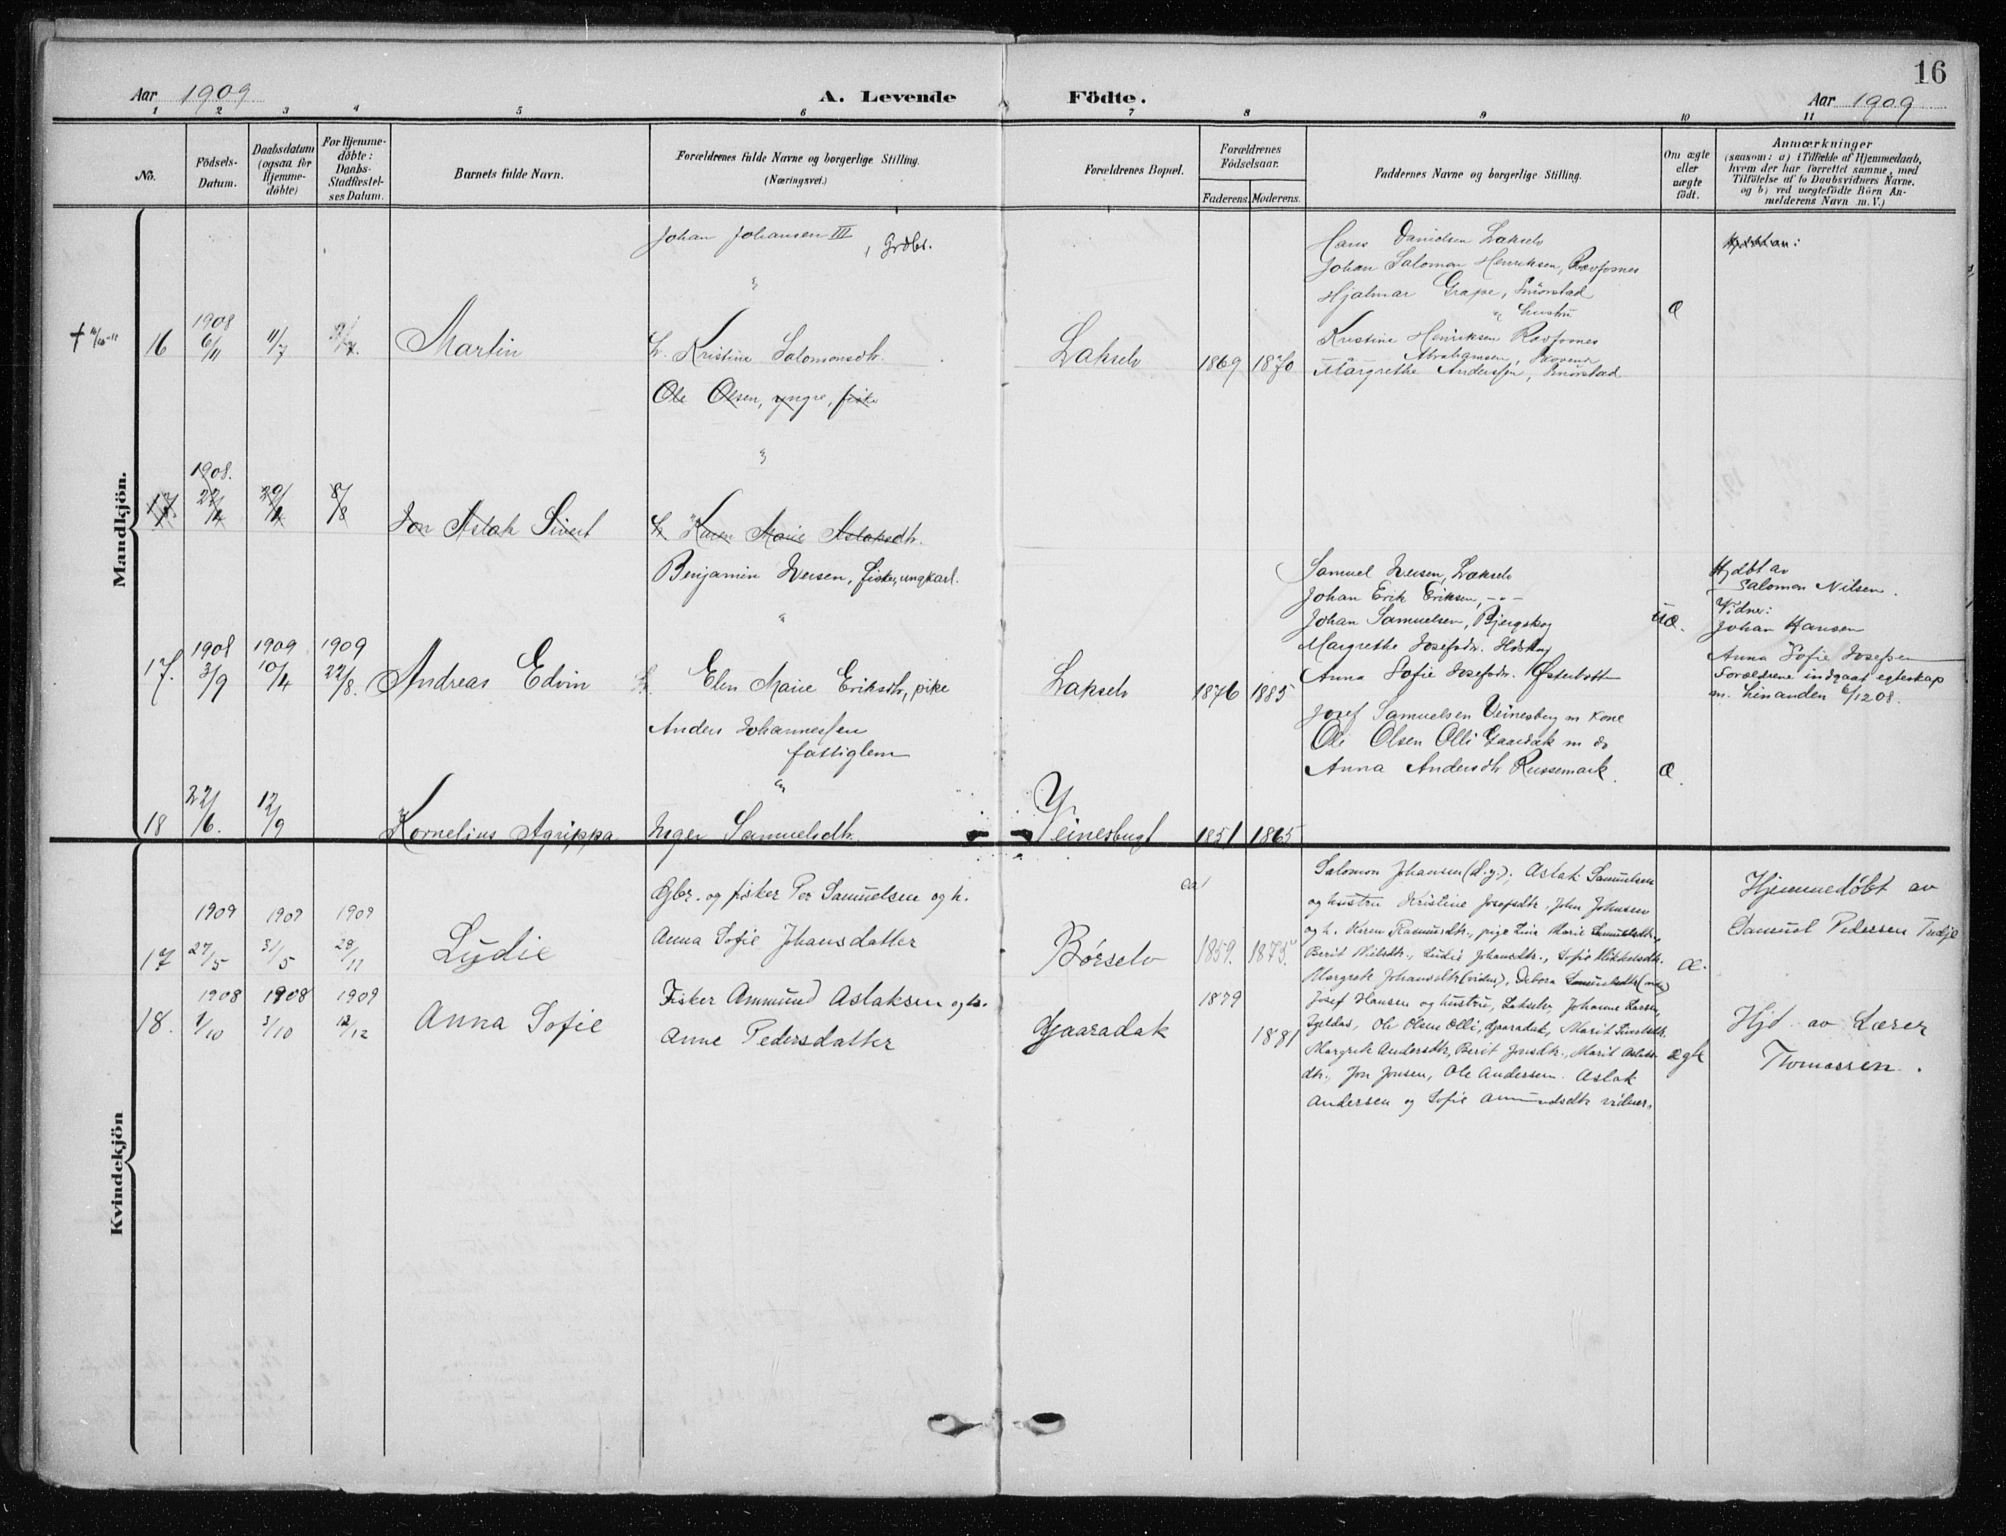 16
Aar 1909
A. Levende Födte.
Aar 1909
1 2 3 4 5 6 7 8 9 10 11
No.
Födsels-
Datum.
Daabsdatum
(ogsaa for
Hjemme-
döbte)
For Hjemme-
döbte:
Daabs-
Stadfæstel-
ses Datum.
Barnets fulde Navn.
Forældrenes fulde Navne og borgerlige Stilling.
(Næringsvei.)
Forældrenes Bopæl.
Forældrenes
Födselsaar.
Faderens. Moderens.
Faddernes Navne og borgerlige Stilling.
Om ægte
eller
uægte
födt.
Anmærkninger
(saasom: a) i Tilfælde af Hjemmedaab,
hvem der har forrettet samme, med
Tilföielse af to Daabsvidners Navne,
og b) ved uægtefödte Börn An-
melderens Navn m. V.)
Mandkjön.
Johan Johansen III, Grdbr.
"
16
1908
6/11
11/7
Martin
Kristine Salomonsdtr.
Lakselv
1869 1870
Hans Danielsen Lakselv
Johan Salomon Henriksen,
Hjalmar Grape,
" hustru
Kristine Henriksen
Abrahamsen,
Margrethe Anderssen,
Æ
Ole Olsen, yngre, fisker
"
17.
1908.
Jon Aslak Sivert
Karen Marie Aslaksdtr.
Benjamin Iversen, fisker, ungkarl.
"
17.
1908
3/9
1909
10/4
1909
22/8.
Andreas Edvin
Elen Marie Eriksdtr, pike
Lakselv
1876 1885
Samuel Iversen, Lakselv
Johan Erik Eriksen, -"-
Johan Samuelsen, Bjergskog
Margrethe Josefsdtr.
Anna Sofie Josefsdr. Østerbotn
uæ.
Hjdbt av
Salomon Nilsen.
Vidner:
Johan Hansen
Anna Sofie Josefsen
Forældrene indgaat egteskap
m. hinanden 6/12 08.
Anders Johannessen
fattiglem
"
18
22/6.
12/9
Kornelius Agrippa
Inger Samuelsdtr.
Veinesbugt
1851 1865
Josef Samuelsen Veinesbug m kone
Ole Olsen Olli Gaaradak m do
Anna Andersdtr Russemark.
Æ.
Kvindekjön
17
1909
27/5
1909
31/5
1909
28/11
Lydie
Gbr. og fisker Per Samuelsen og h.
Anna Sofie Johansdatter
Børselv
ca
1859. 1875.
Salomon Johansen, Aslak Samuelsen
og hustru Kristine Josefsdtr. John Johnsen
og h. Karen Rasmusdtr., pige Lina Marie Samuelsdtr.
Berit Nielsdtr., Ludie Johansdtr., Sofie Mikkelsdtr.
Margrete Johansdtr (vidne), Debora Samuelsdtr
æ.
Hjemmedöbt av
Samuel Pedersen
18.
1908
1/10
1908
3/10
1909
12/12
Anna Sofie
Fisker Ammund Aslaksen og h.
Anne Pedersdatter
Gaaradak
1879
1881
Josef Hansen og hustru, Lakselv, Johanne Larsen,
Ole Olsen Olli, Gaaradak, Marit
Margrete Andersdtr, Berit Jonsdtr., Marit Aslaks-
dtr., Jon Jonsen, Ole Andersen. Aslak
Andersen og Sofie Amundsdtr vidner.
ægte
Hjd. av Lærer
Thomassen.